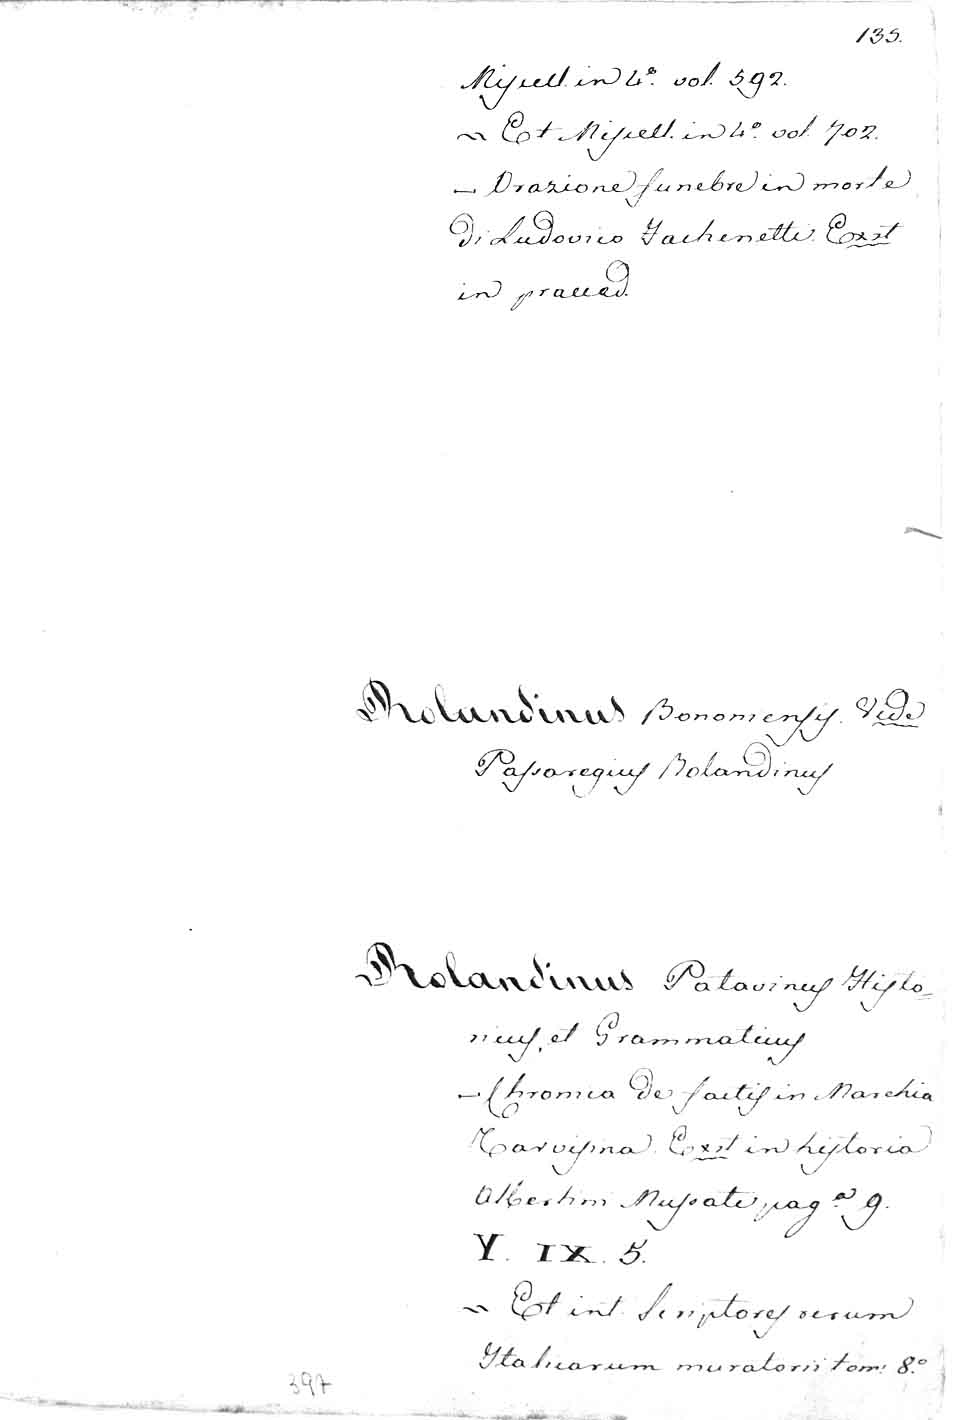 135.
Miscell. in 4.º vol. 592.
~ Et Miscell. in 4.º vol. 702.
– Orazione funebre in morte
di Ludovico Zachenetti. Exst
in praeced.
Rolandinus Bononiensis. Vide
Passaregius Rolandinus
Rolandinus Patavinus Histo=
ricus, et Grammaticus
– Chronica de factis in Marchia
Tarvisina. Exst in historia
Albertini Mussati pag.ª 9.
Y. IX. 5.
~ Et int. Scriptores rerum
Italicarum muratorii tom: 8.º
397